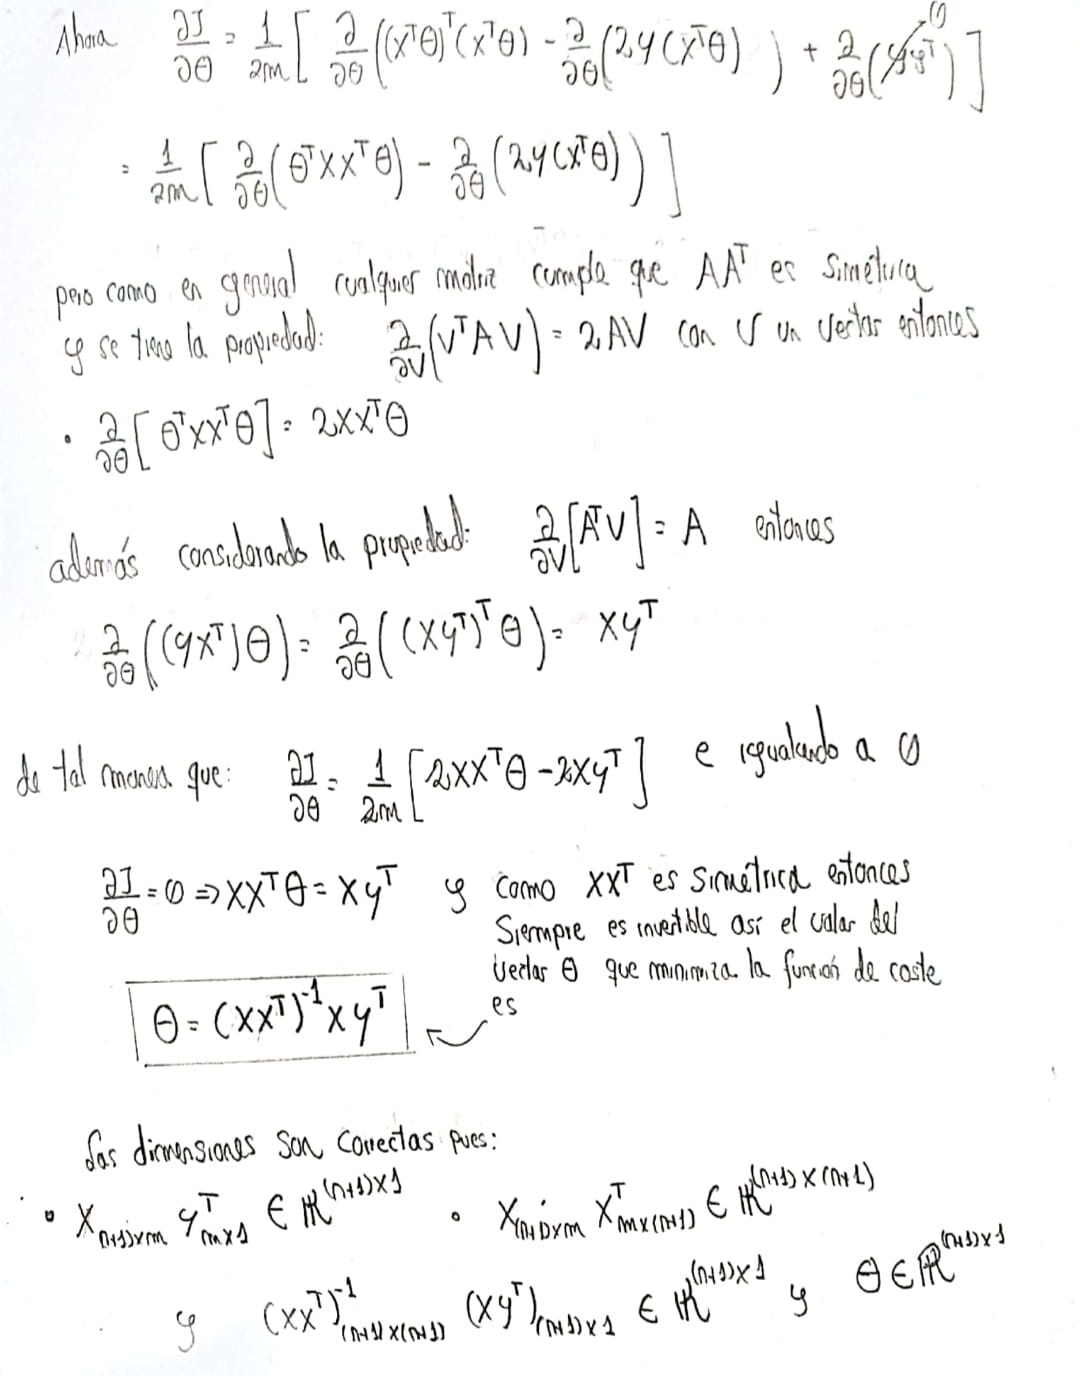 Ahora ∂J/∂θ = 1/2m [ ∂/∂θ ((XᵀΘ)ᵀ(XᵀΘ) - ∂/∂θ (2y(XᵀΘ) ) + ∂/∂θ (yyᵀ) ] 0
= 1/2m [ ∂/∂θ (ΘᵀXXᵀΘ) - ∂/∂θ (2y(XᵀΘ)) ]
pero como en general cualquier matriz cumple que AAᵀ es simétrica
y se tiene la propiedad: ∂/∂V (VᵀAV) = 2AV con V un vector entonces
• ∂/∂θ [ΘᵀXXᵀΘ] = 2XXᵀΘ
además considerando la propiedad: ∂/∂V [AᵀV] = A entonces
∂/∂θ ((yXᵀ)Θ) = ∂/∂θ ((Xyᵀ)ᵀΘ) = Xyᵀ
de tal manera que: ∂J/∂θ = 1/2m [2XXᵀΘ - 2Xyᵀ] e igualando a 0
∂J/∂θ = 0 ⇒ XXᵀΘ = Xyᵀ y como XXᵀ es simétrica entonces
siempre es invertible así el valor del
vector Θ que minimiza la función de coste
es
Θ = (XXᵀ)⁻¹Xyᵀ
Las dimensiones son correctas pues:
• X₍ₙ₊₁₎ₓₘ yᵀₘₓ₁ ∈ ℝ⁽ⁿ⁺¹⁾ˣ¹ • X₍ₙ₊₁₎ₓₘ Xᵀₘₓ₍ₙ₊₁₎ ∈ ℝ⁽ⁿ⁺¹⁾ˣ⁽ⁿ⁺¹⁾
y (XXᵀ)⁻¹₍ₙ₊₁₎ₓ₍ₙ₊₁₎ (Xyᵀ)₍ₙ₊₁₎ₓ₁ ∈ ℝ⁽ⁿ⁺¹⁾ˣ¹ y Θ ∈ ℝ⁽ⁿ⁺¹⁾ˣ¹